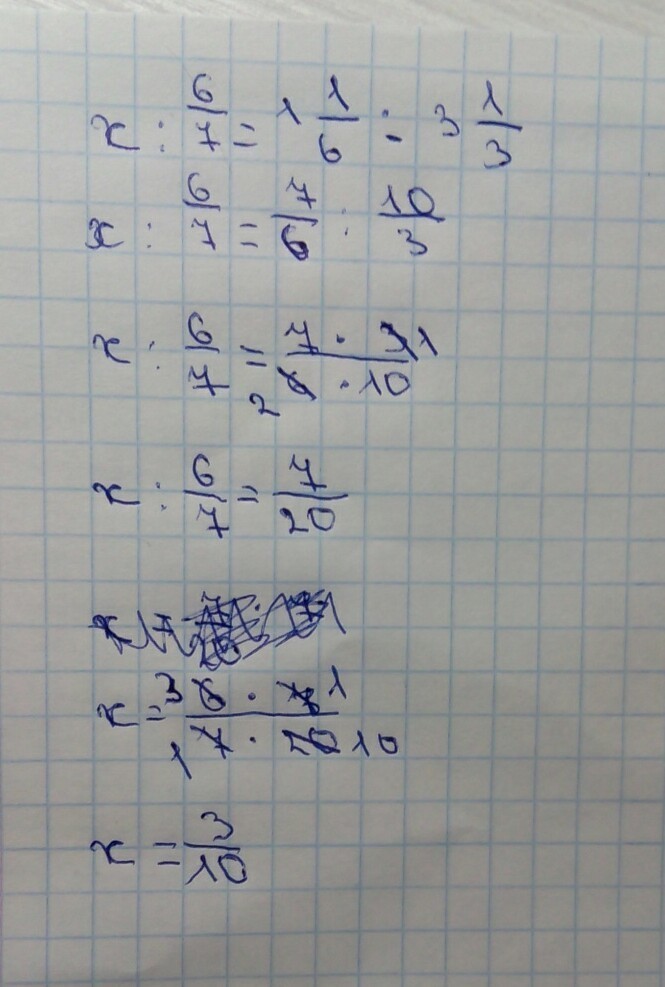 x : 6/7 = 1 1/6 : 3 1/3
x : 6/7 = 7/6 : 10/3
x : 6/7 = 7 · 3 1 / 2 6 · 10
x : 6/7 = 7/20
x =
x = 3 6 · 7 1 / 1 7 · 20 10
x = 3/10